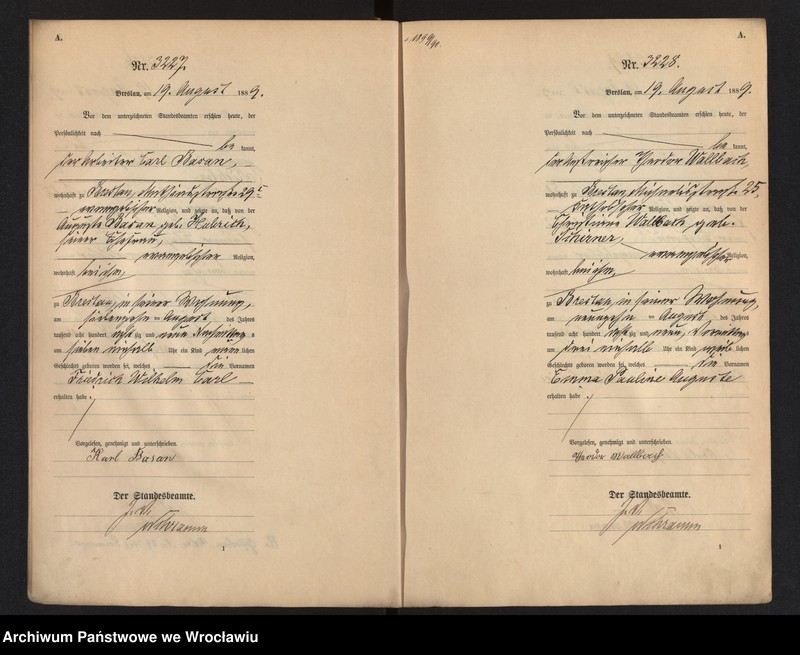 A.
Nr. 3227.
Breslau, am 19. August 1889.
Vor dem unterzeichneten Standesbeamten erschien heute, der
Persönlichkeit nach
be kannt,
der Arbeiter Carl Basan,
wohnhaft zu Breslau,
evangelischer Religion, und zeigte an, daß von der
Auguste Basan geb. Hubrich,
seiner Ehefrau,
evangelischer Religion,
wohnhaft bei ihm,
zu Breslau, in seiner Wohnung,
am siebenzehn ten August des Jahres
tausend acht hundert acht zig und neun Nachmittags
um sieben einhalb Uhr ein Kind männ lichen
Geschlechts geboren worden sei, welches die Vornamen
Friedrich Wilhelm Carl
erhalten habe.
Vorgelesen, genehmigt und unterschrieben
Karl Basan
Der Standesbeamte.
J. V.
Schramm
1
A.
Nr. 3228.
Breslau, am 19. August 1889.
Vor dem unterzeichneten Standesbeamten erschien heute, der
Persönlichkeit nach
be kannt,
der Theodor Wallbach,
wohnhaft zu Breslau, 25,
katholischer Religion, und zeigte an, daß von der
Christiane Wallbach geb.
Schirner,
evangelischer Religion,
wohnhaft bei ihm,
zu Breslau, in seiner Wohnung,
am neunzehn ten August des Jahres
tausend acht hundert acht zig und neun, Vormittags
um drei einhalb Uhr ein Kind weib lichen
Geschlechts geboren worden sei, welches die Vornamen
Emma Pauline Auguste
erhalten habe.
Vorgelesen, genehmigt und unterschrieben
Theodor Wallbach
Der Standesbeamte.
J. V.
Schramm
1
Archiwum Państwowe we Wrocławiu